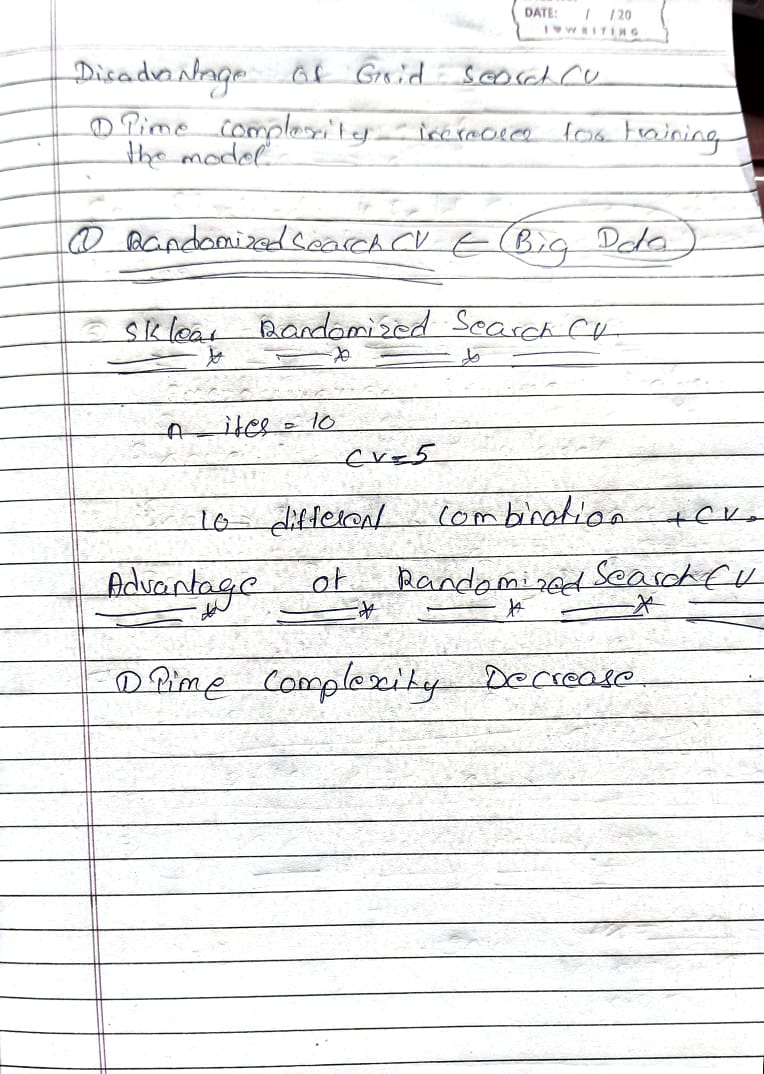 DATE: / /20
I ♥ WRITING
Disadvantage of Grid Search CV
① Time complexity increases for training
the model.
① Randomized Search CV ← Big Data
SKlear Randomized Search CV
n_iter = 10
CV=5
10 different Combination + CV.
Advantage of Randomized Search CV
① Time Complexity Decrease